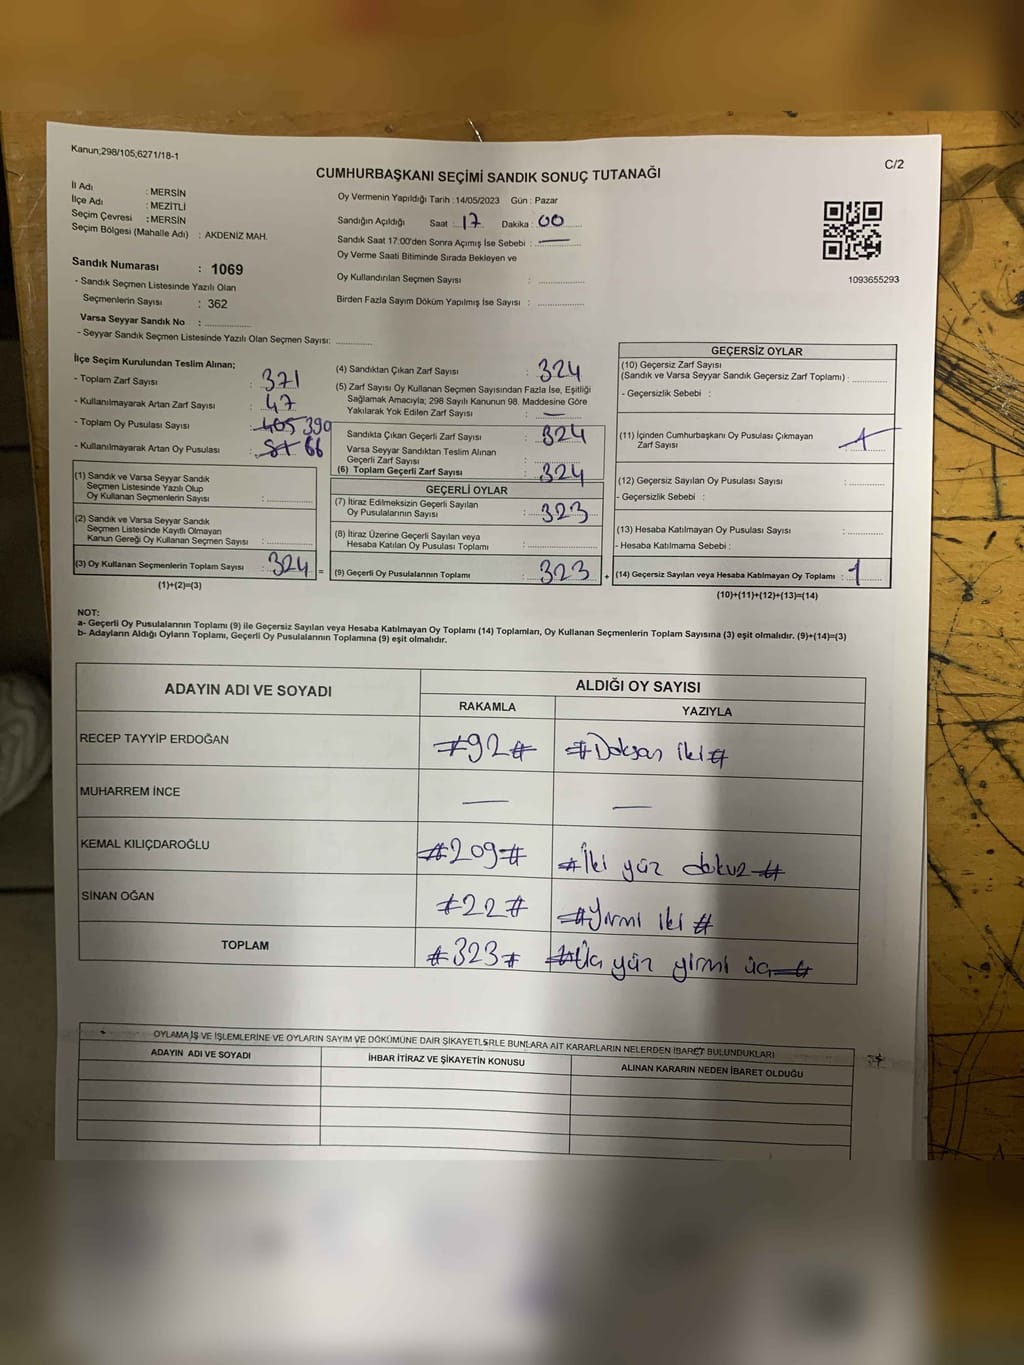 Kanun;298/105;6271/18-1
C/2
CUMHURBAŞKANI SEÇİMİ SANDIK SONUÇ TUTANAĞI
İl Adı : MERSİN
İlçe Adı : MEZİTLİ
Seçim Çevresi : MERSİN
Seçim Bölgesi (Mahalle Adı) : AKDENİZ MAH.
Sandık Numarası : 1069
- Sandık Seçmen Listesinde Yazılı Olan
Seçmenlerin Sayısı : 362
Varsa Seyyar Sandık No : ....................
- Seyyar Sandık Seçmen Listesinde Yazılı Olan Seçmen Sayısı: ..............
Oy Vermenin Yapıldığı Tarih : 14/05/2023 Gün : Pazar
Sandığın Açıldığı Saat : 17 Dakika : 00
Sandık Saat 17:00'den Sonra Açımış İse Sebebi : —
Oy Verme Saati Bitiminde Sırada Bekleyen ve
Oy Kullandırılan Seçmen Sayısı : ................
Birden Fazla Sayım Döküm Yapılmış İse Sayısı : ................
1093655293
İlçe Seçim Kurulundan Teslim Alınan;
- Toplam Zarf Sayısı : 371
- Kullanılmayarak Artan Zarf Sayısı : 47
- Toplam Oy Pusulası Sayısı : 405 390
- Kullanılmayarak Artan Oy Pusulası : 66
(1) Sandık ve Varsa Seyyar Sandık
Seçmen Listesinde Yazılı Olup
Oy Kullanan Seçmenlerin Sayısı : ..............
(2) Sandık ve Varsa Seyyar Sandık
Seçmen Listesinde Kayıtlı Olmayan
Kanun Gereği Oy Kullanan Seçmen Sayısı : ..............
(3) Oy Kullanan Seçmenlerin Toplam Sayısı : 324 =
(1)+(2)=(3)
(4) Sandıktan Çıkan Zarf Sayısı : 324
(5) Zarf Sayısı Oy Kullanan Seçmen Sayısından Fazla İse, Eşitliği
Sağlamak Amacıyla; 298 Sayılı Kanunun 98. Maddesine Göre
Yakılarak Yok Edilen Zarf Sayısı : —
Sandıkta Çıkan Geçerli Zarf Sayısı : 324
Varsa Seyyar Sandıktan Teslim Alınan
Geçerli Zarf Sayısı :
(6) Toplam Geçerli Zarf Sayısı : 324
GEÇERLİ OYLAR
(7) İtiraz Edilmeksizin Geçerli Sayılan
Oy Pusulalarının Sayısı : 323
(8) İtiraz Üzerine Geçerli Sayılan veya
Hesaba Katılan Oy Pusulası Toplamı : ................
(9) Geçerli Oy Pusulalarının Toplamı : 323 +
GEÇERSİZ OYLAR
(10) Geçersiz Zarf Sayısı
(Sandık ve Varsa Seyyar Sandık Geçersiz Zarf Toplamı) : ............
- Geçersizlik Sebebi :
(11) İçinden Cumhurbaşkanı Oy Pusulası Çıkmayan
Zarf Sayısı : 1
(12) Geçersiz Sayılan Oy Pusulası Sayısı : ............
- Geçersizlik Sebebi :
(13) Hesaba Katılmayan Oy Pusulası Sayısı : ............
- Hesaba Katılmama Sebebi :
(14) Geçersiz Sayılan veya Hesaba Katılmayan Oy Toplamı : 1
(10)+(11)+(12)+(13)=(14)
NOT:
a- Geçerli Oy Pusulalarının Toplamı (9) ile Geçersiz Sayılan veya Hesaba Katılmayan Oy Toplamı (14) Toplamları, Oy Kullanan Seçmenlerin Toplam Sayısına (3) eşit olmalıdır. (9)+(14)=(3)
b- Adayların Aldığı Oyların Toplamı, Geçerli Oy Pusulalarının Toplamına (9) eşit olmalıdır.
ADAYIN ADI VE SOYADI
ALDIĞI OY SAYISI
RAKAMLA YAZIYLA
RECEP TAYYİP ERDOĞAN #92# #Doksan iki#
MUHARREM İNCE — —
KEMAL KILIÇDAROĞLU #209# #İki yüz dokuz#
SİNAN OĞAN #22# #Yirmi iki#
TOPLAM #323# #Üç yüz yirmi üç#
OYLAMA İŞ VE İŞLEMLERİNE VE OYLARIN SAYIM VE DÖKÜMÜNE DAİR ŞİKAYETLERLE BUNLARA AİT KARARLARIN NELERDEN İBARET BULUNDUKLARI
ADAYIN ADI VE SOYADI İHBAR İTİRAZ VE ŞİKAYETİN KONUSU ALINAN KARARIN NEDEN İBARET OLDUĞU